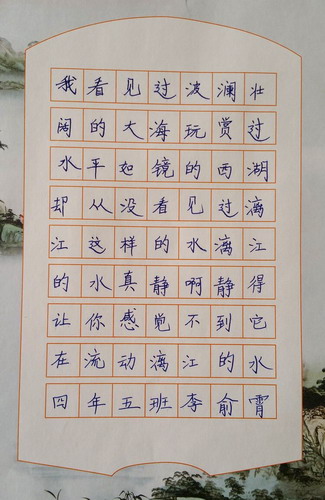 我看见过波澜壮
阔的大海玩赏过
水平如镜的西湖
却从没看见过漓
江这样的水漓江
的水真静啊静得
让你感觉不到它
在流动漓江的水
四年五班李俞霄